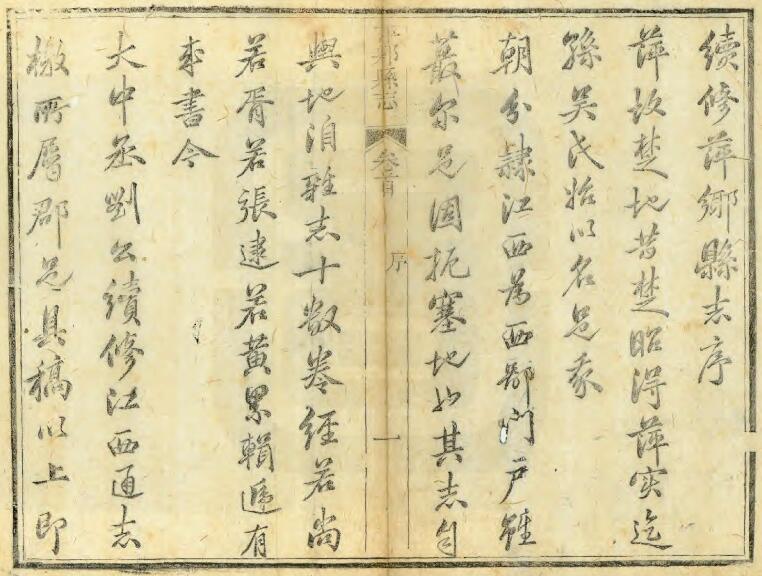 續修萍鄉縣志序
萍故楚地昔楚昭得萍实迄
孫吴氏始以名邑我
朝分隸江西為西鄙門户雖
蕞尔邑固扼塞地也其志自
萍鄉縣志 卷首 序 一
輿地洎雜志十数卷經若尚
若胥若張逮若黃累輯遞有
成書今
大中丞劉公續修江西通志
檄所属郡邑具稿以上即